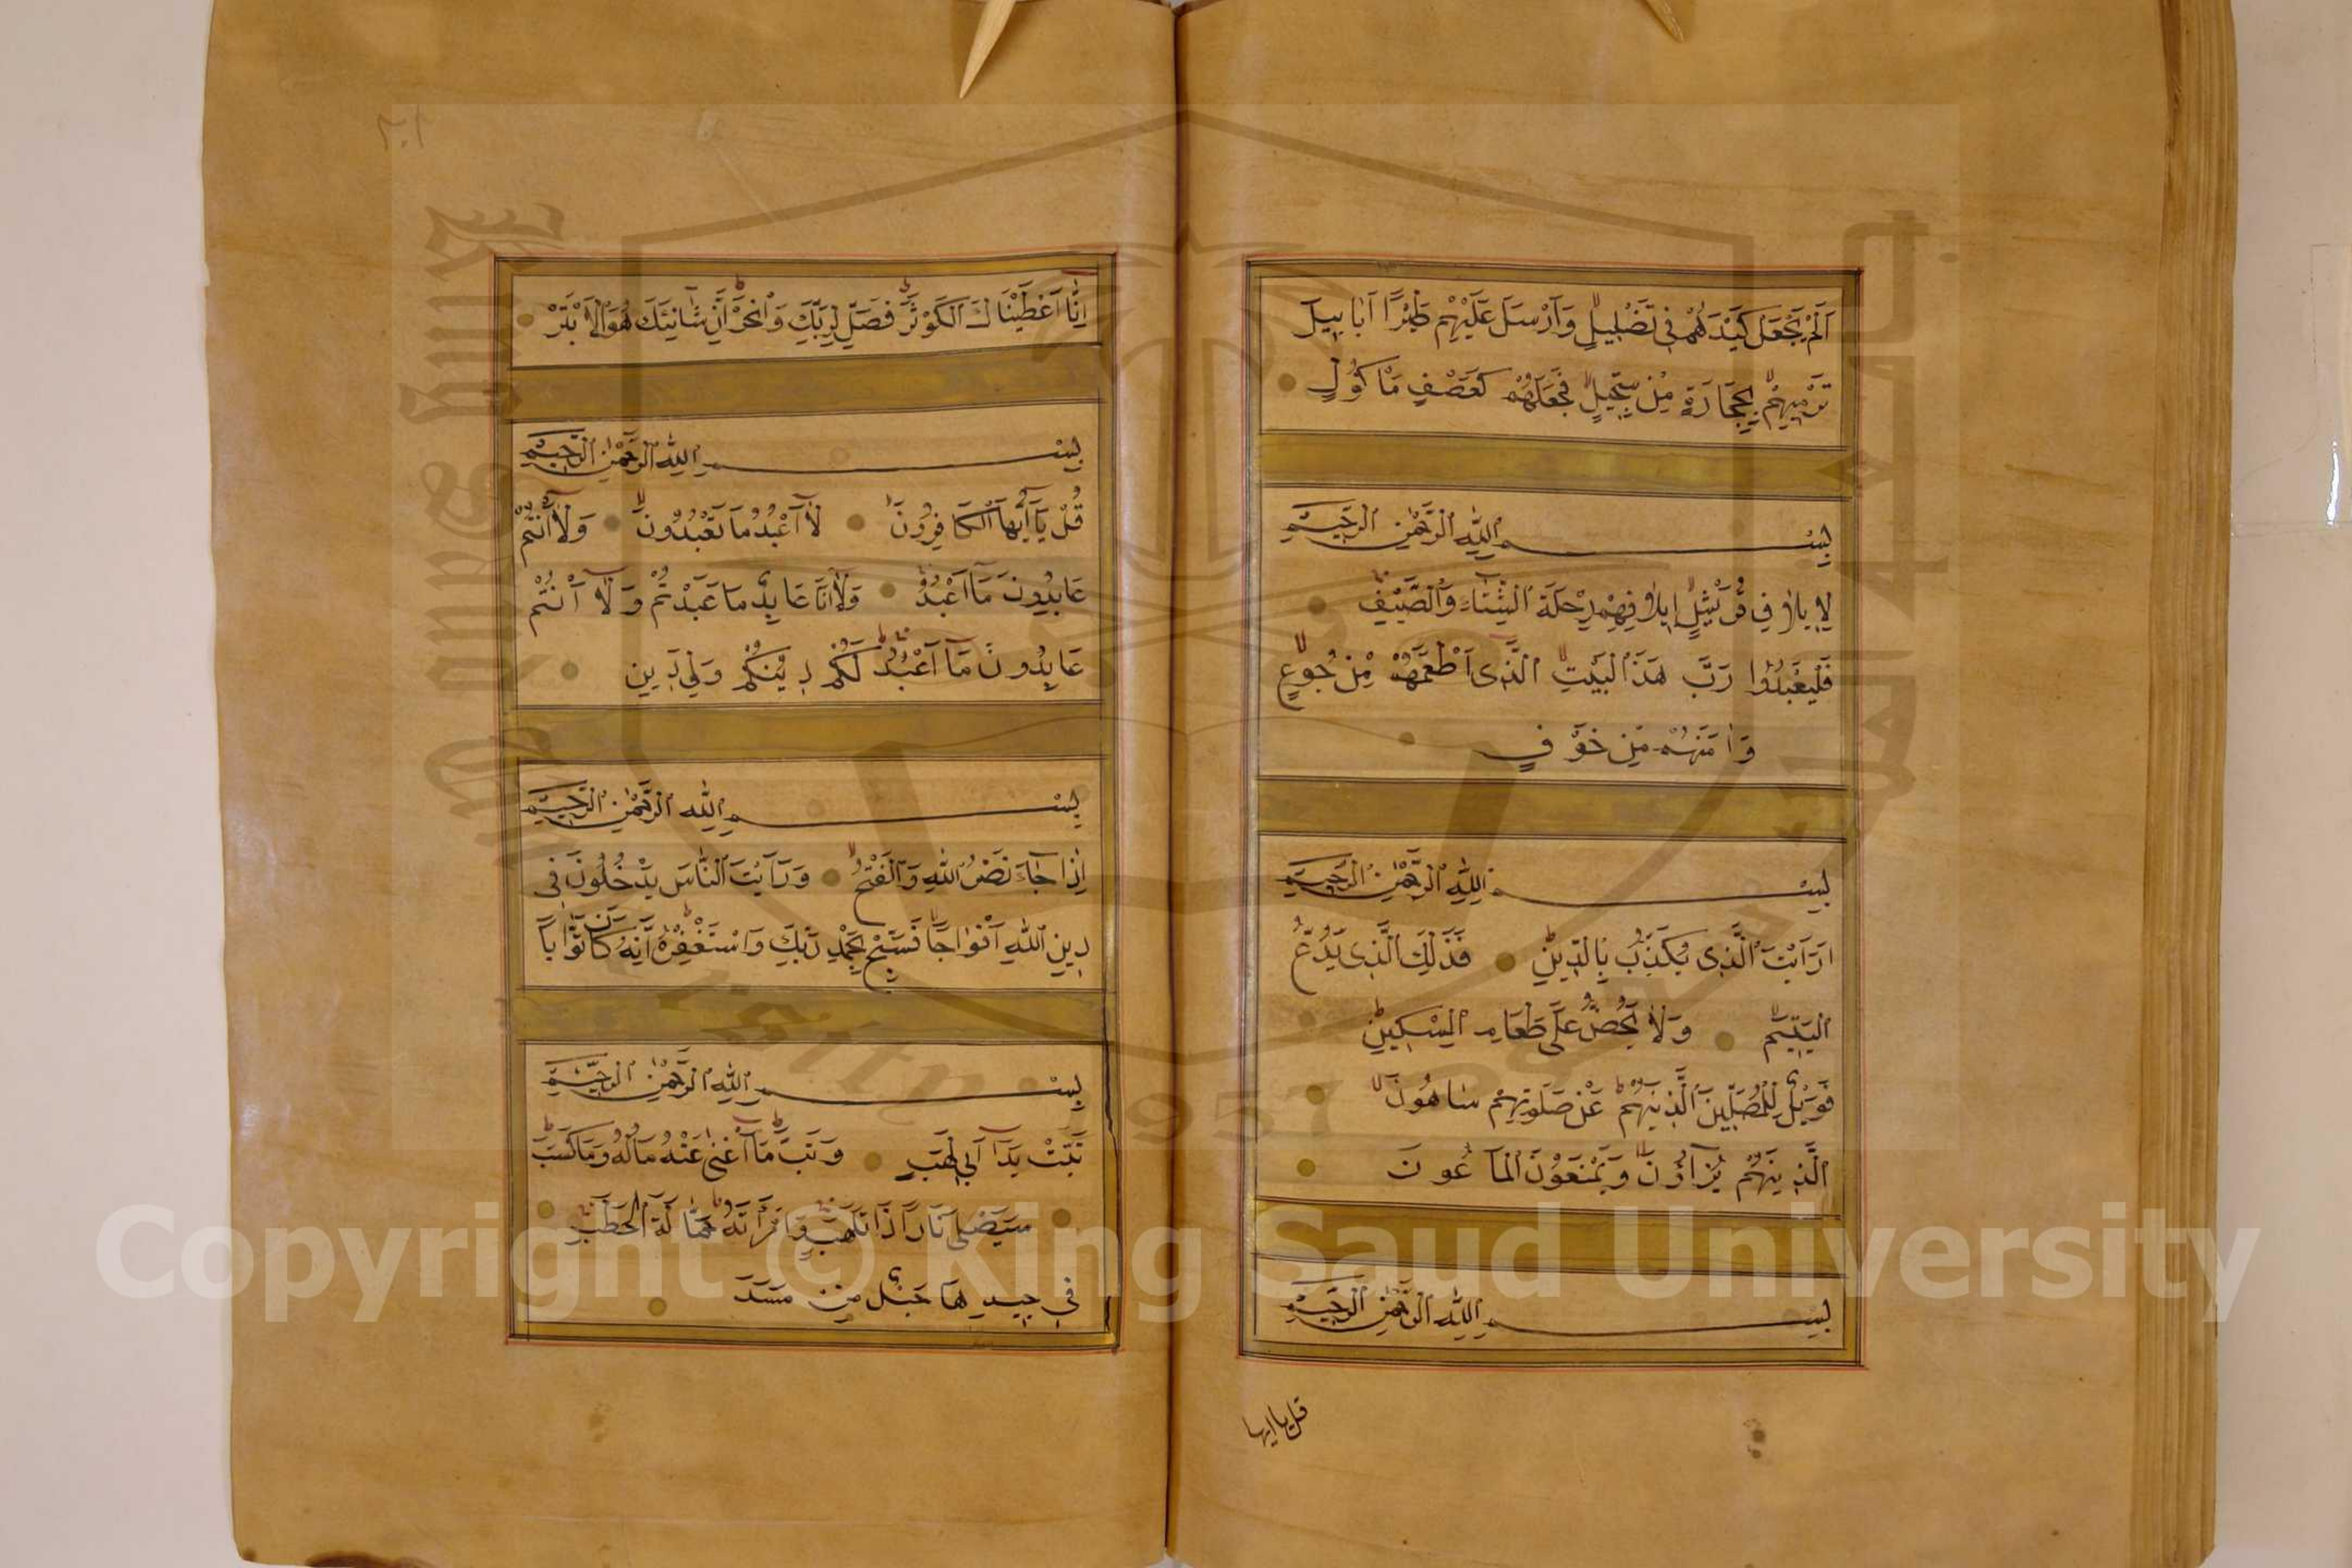 اَلَمْ يَجْعَلْ كَيْدَهُمْ فِي تَضْلِيلٍ وَاَرْسَلَ عَلَيْهِمْ طَيْرًا اَبَابِيلَ
تَرْمِيهِمْ بِحِجَارَةٍ مِنْ سِجِّيلٍ فَجَعَلَهُمْ كَعَصْفٍ مَأْكُولٍ
بِسْمِ اللّٰهِ الرَّحْمٰنِ الرَّحِيمِ
لِإِيلَافِ قُرَيْشٍ إِيلَافِهِمْ رِحْلَةَ الشِّتَاءِ وَالصَّيْفِ
فَلْيَعْبُدُوا رَبَّ هَذَا الْبَيْتِ الَّذِى اَطْعَمَهُمْ مِنْ جُوعٍ
وَاٰمَنَهُمْ مِنْ خَوْفٍ
بِسْمِ اللّٰهِ الرَّحْمٰنِ الرَّحِيمِ
اَرَاَيْتَ الَّذِى يُكَذِّبُ بِالدِّينِ فَذَلِكَ الَّذِى يَدُعُّ
الْيَتِيمَ وَلَا يَحُضُّ عَلَى طَعَامِ الْمِسْكِينِ
فَوَيْلٌ لِلْمُصَلِّينَ الَّذِينَهُمْ عَنْ صَلَوتِهِمْ سَاهُونَ
الَّذِينَهُمْ يُرَاؤُنَ وَيَمْنَعُونَ الْمَاعُونَ
بِسْمِ اللّٰهِ الرَّحْمٰنِ الرَّحِيمِ
قل يا ايها
٢٠١
اِنَّا اَعْطَيْنَاكَ الْكَوْثَرَ فَصَلِّ لِرَبِّكَ وَانْحَرْ اِنَّ شَانِئَكَ هُوَ الْاَبْتَرُ
بِسْمِ اللّٰهِ الرَّحْمٰنِ الرَّحِيمِ
قُلْ يَا اَيُّهَا الْكَافِرُونَ لَا اَعْبُدُ مَا تَعْبُدُونَ وَلَا اَنْتُمْ
عَابِدُونَ مَا اَعْبُدُ وَلَا اَنَا عَابِدٌ مَا عَبَدْتُمْ وَلَا اَنْتُمْ
عَابِدُونَ مَا اَعْبُدُ لَكُمْ دِينُكُمْ وَلِيَ دِينِ
بِسْمِ اللّٰهِ الرَّحْمٰنِ الرَّحِيمِ
اِذَا جَاءَ نَصْرُ اللّٰهِ وَالْفَتْحُ وَرَاَيْتَ النَّاسَ يَدْخُلُونَ فِى
دِينِ اللّٰهِ اَفْوَاجًا فَسَبِّحْ بِحَمْدِ رَبِّكَ وَاسْتَغْفِرْهُ اِنَّهُ كَانَ تَوَّابًا
بِسْمِ اللّٰهِ الرَّحْمٰنِ الرَّحِيمِ
تَبَّتْ يَدَا اَبِى لَهَبٍ وَتَبَّ مَا اَغْنٰى عَنْهُ مَالُهُ وَمَا كَسَبَ
سَيَصْلٰى نَارًا ذَاتَ لَهَبٍ وَامْرَأَتُهُ حَمَّالَةَ الْحَطَبِ
فِى جِيدِهَا حَبْلٌ مِنْ مَسَدٍ
Copyright © King Saud University
King Saud University
1957